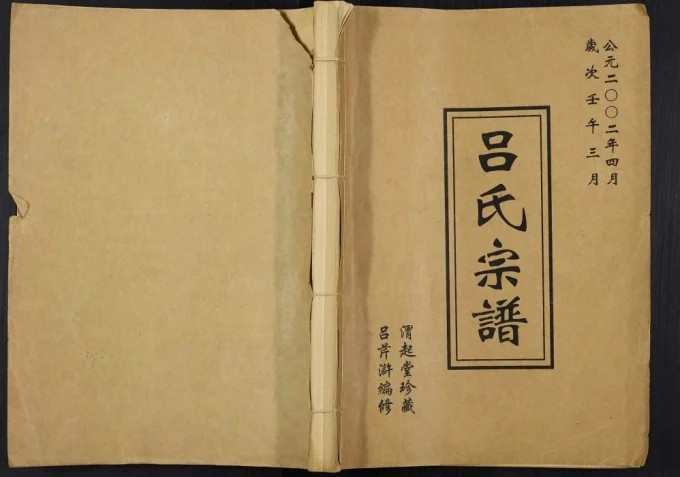 公元二〇〇二年四月
歲次壬午三月
吕氏宗譜
渭起堂珍藏
吕芹滸編修